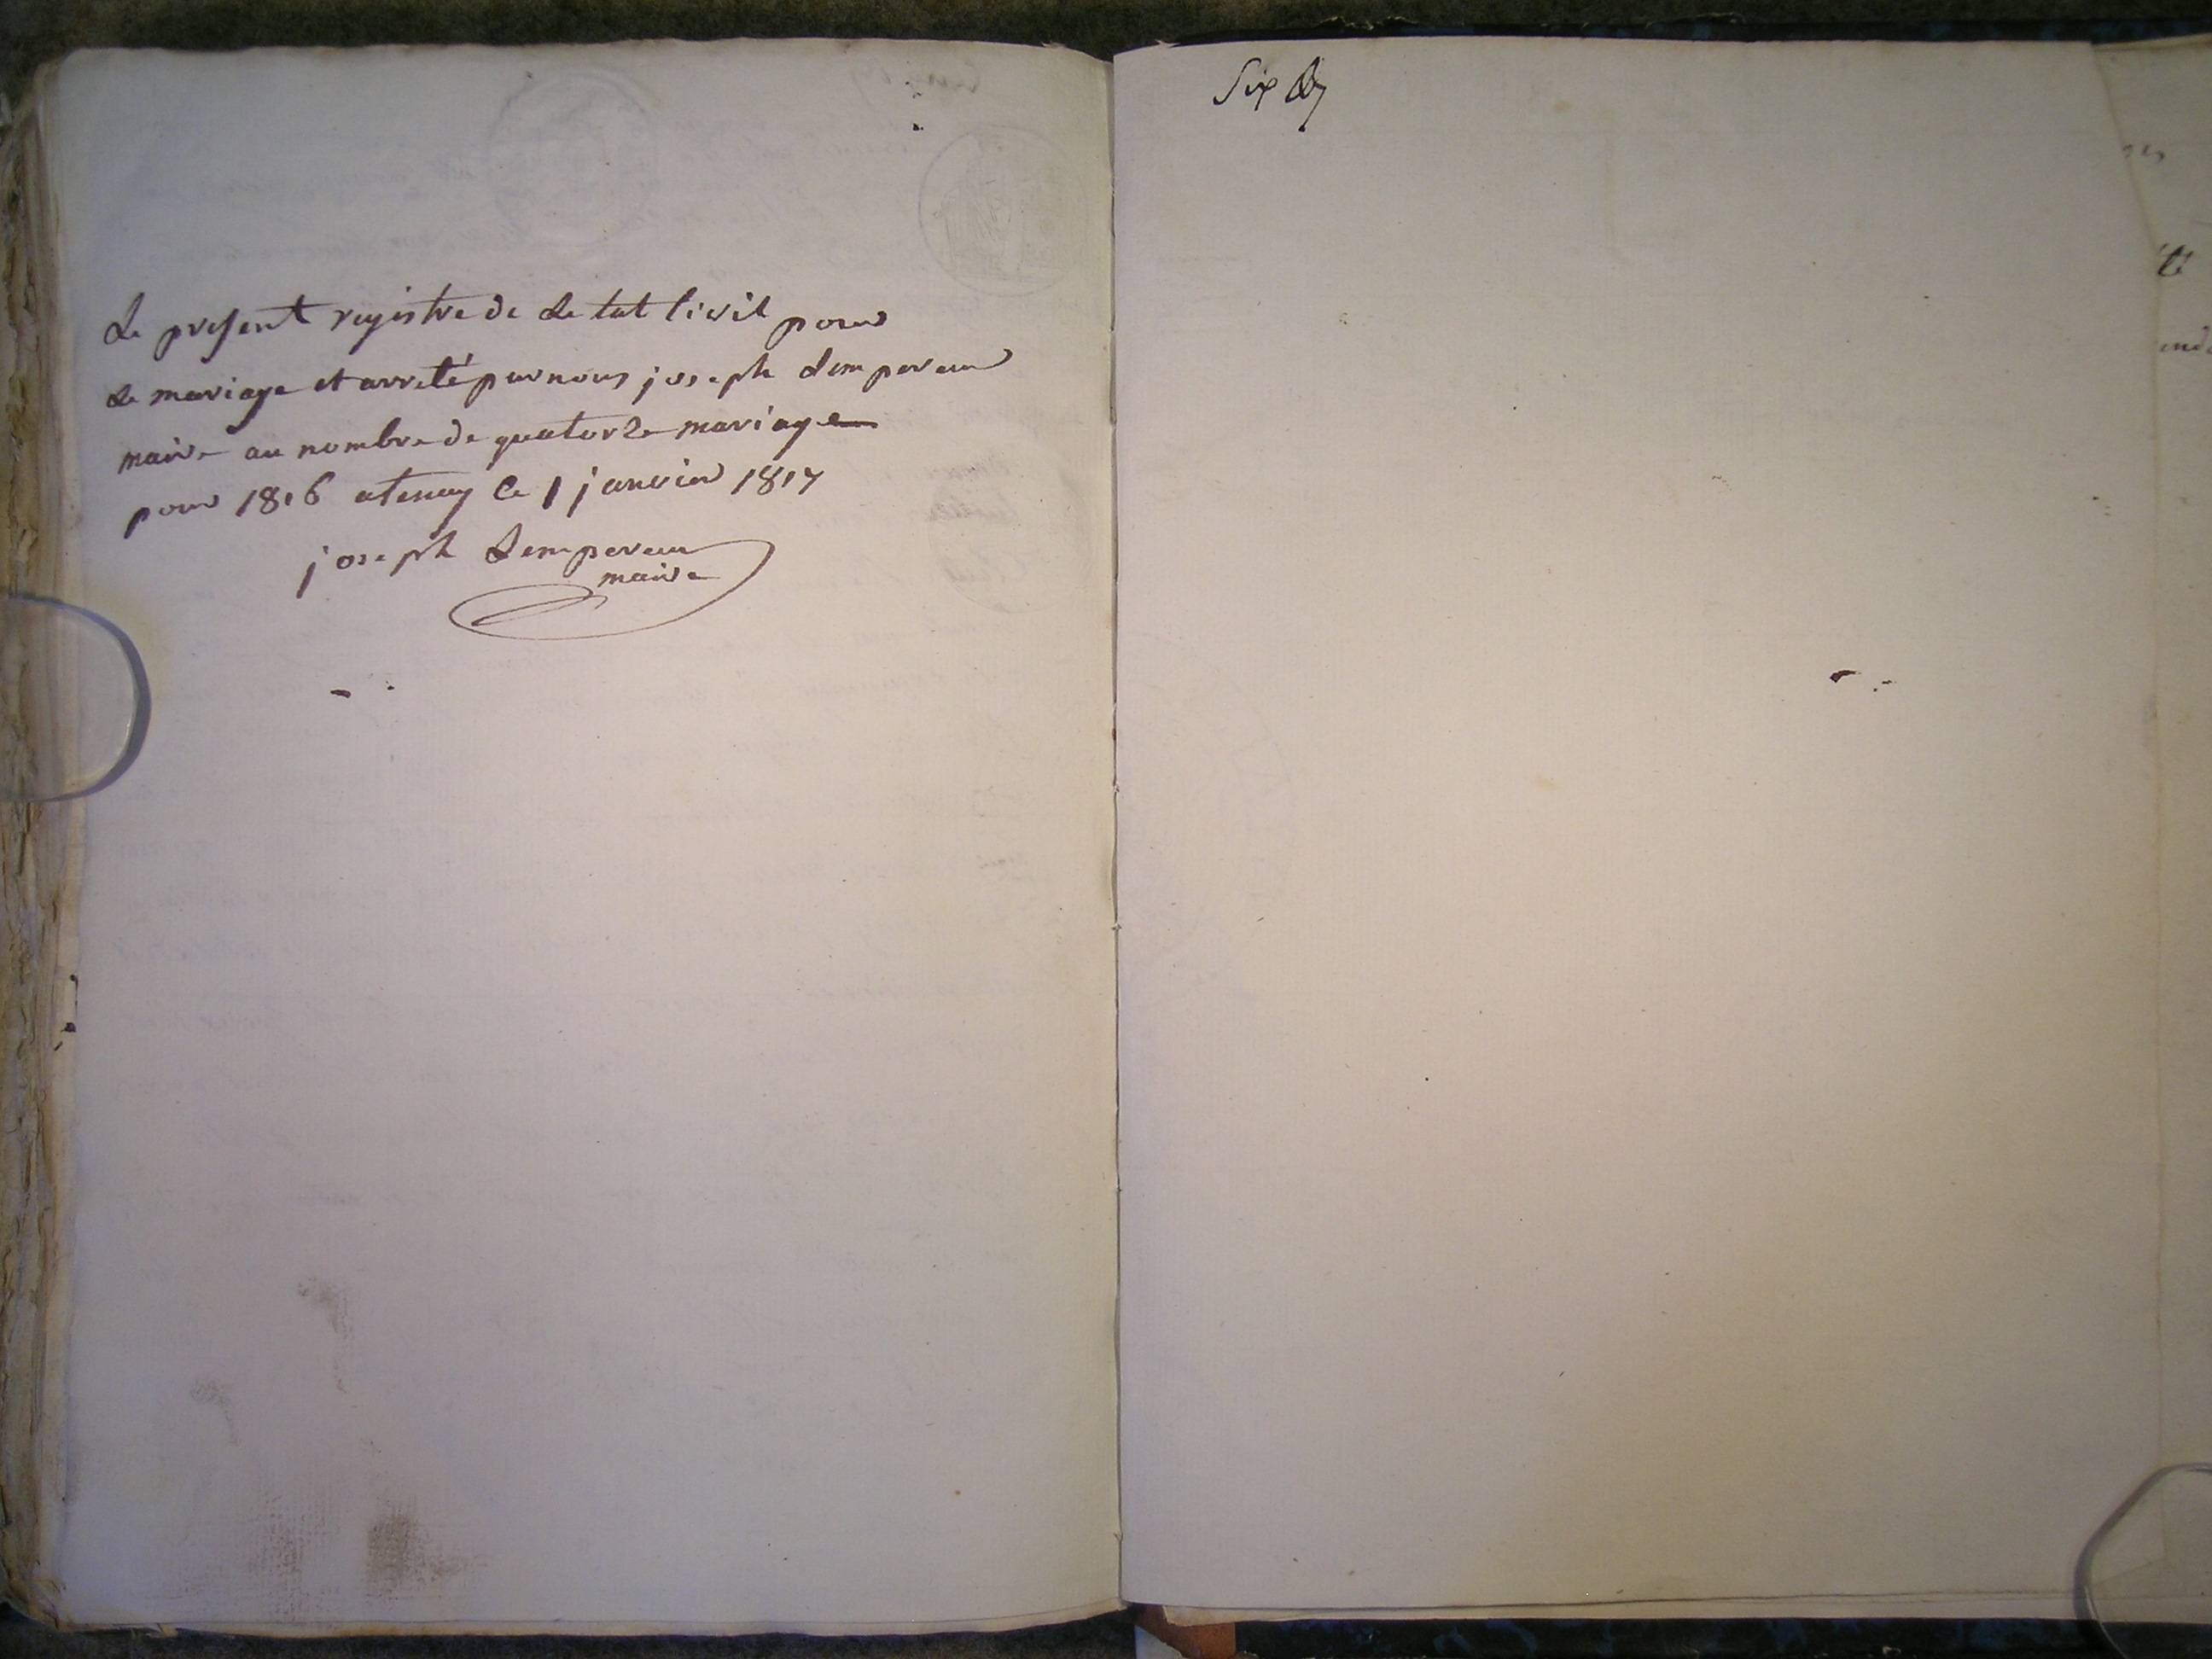 Le present registre de Le tat Civil pour
Le mariage et arreté par nous joseph Lempereur
maire au nombre de quatorze mariage
pour 1816 atenay Ce 1 janvier 1817
joseph Lempereur
maire
Six